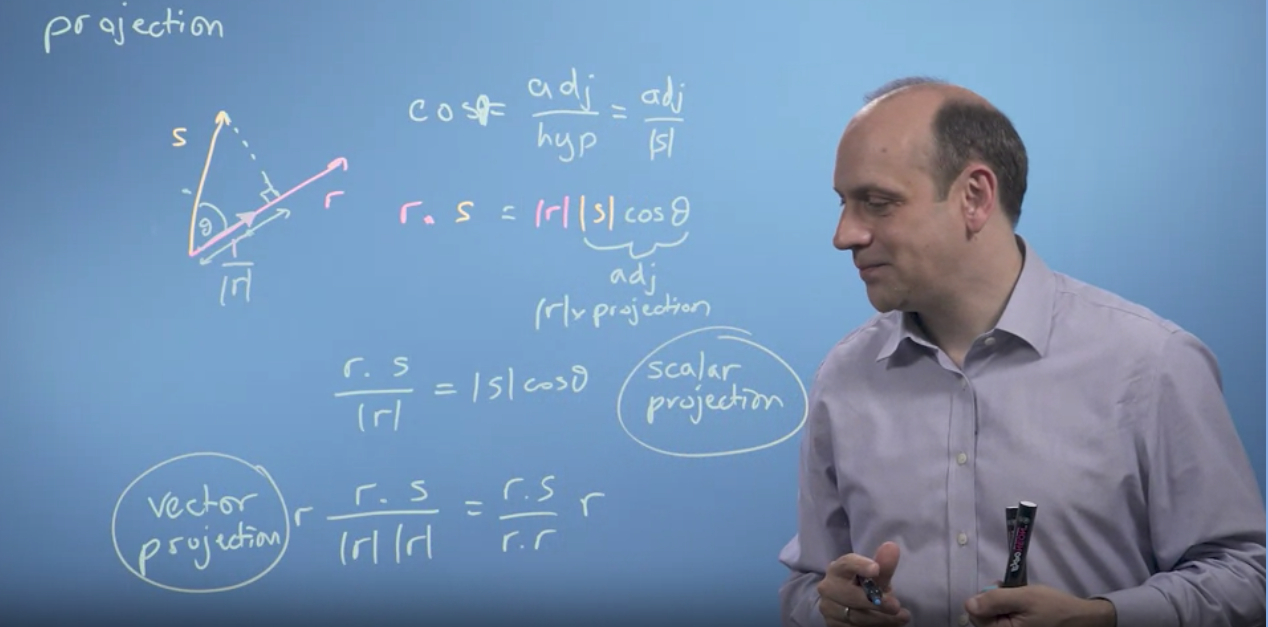 projection
cosθ = adj/hyp = adj/|s|
s
r
θ
|r|
r. s = |r| |s| cosθ
adj
|r|x projection
r. s/|r| = |s| cosθ
scalar
projection
vector
projection
r r. s/|r| |r| = r.s/r.r r